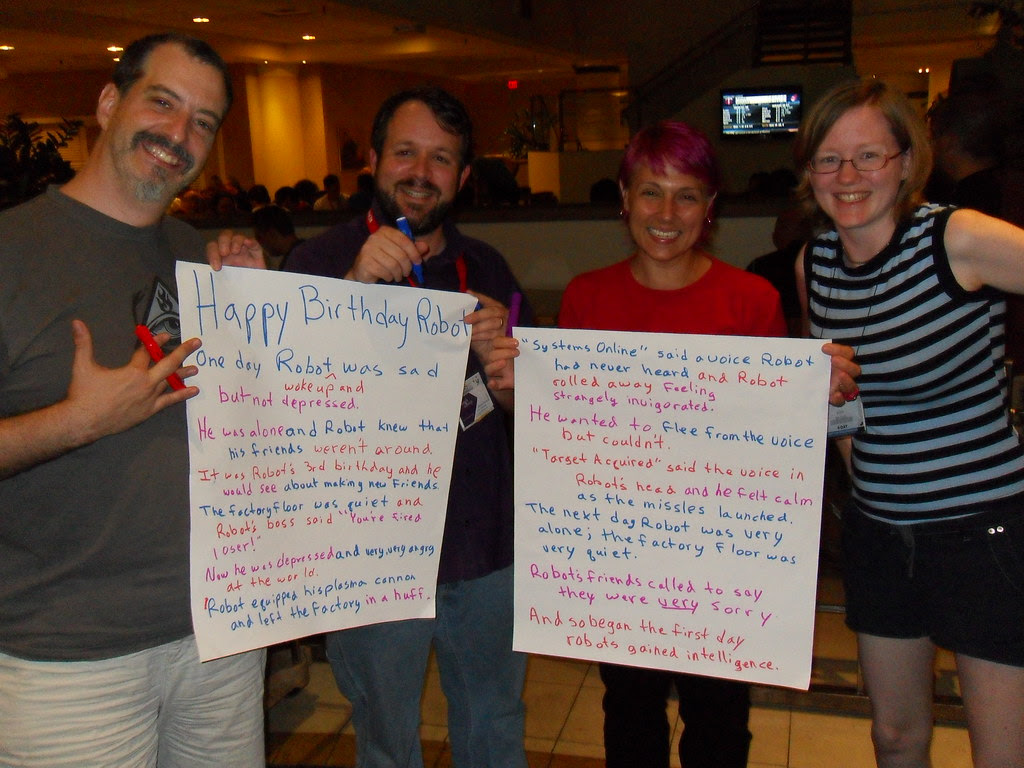 Happy Birthday Robot
One day Robot was sad
woke up and
but not depressed.
He was alone and Robot knew that
his friends weren't around.
It was Robot's 3rd birthday and he
would see about making new friends.
The factory floor was quiet and
Robot's boss said "You're fired
loser!"
Now he was depressed and very, very angry
at the world.
Robot equipped his plasma cannon
and left the factory in a huff.
"Systems Online" said a voice Robot
had never heard and Robot
rolled away feeling
strangely invigorated.
He wanted to flee from the voice
but couldn't.
"Target Acquired" said the voice in
Robot's head and he felt calm
as the missles launched.
The next day Robot was very
alone; the factory floor was
very quiet.
Robot's friends called to say
they were very sorry
And so began the first day
robots gained intelligence.